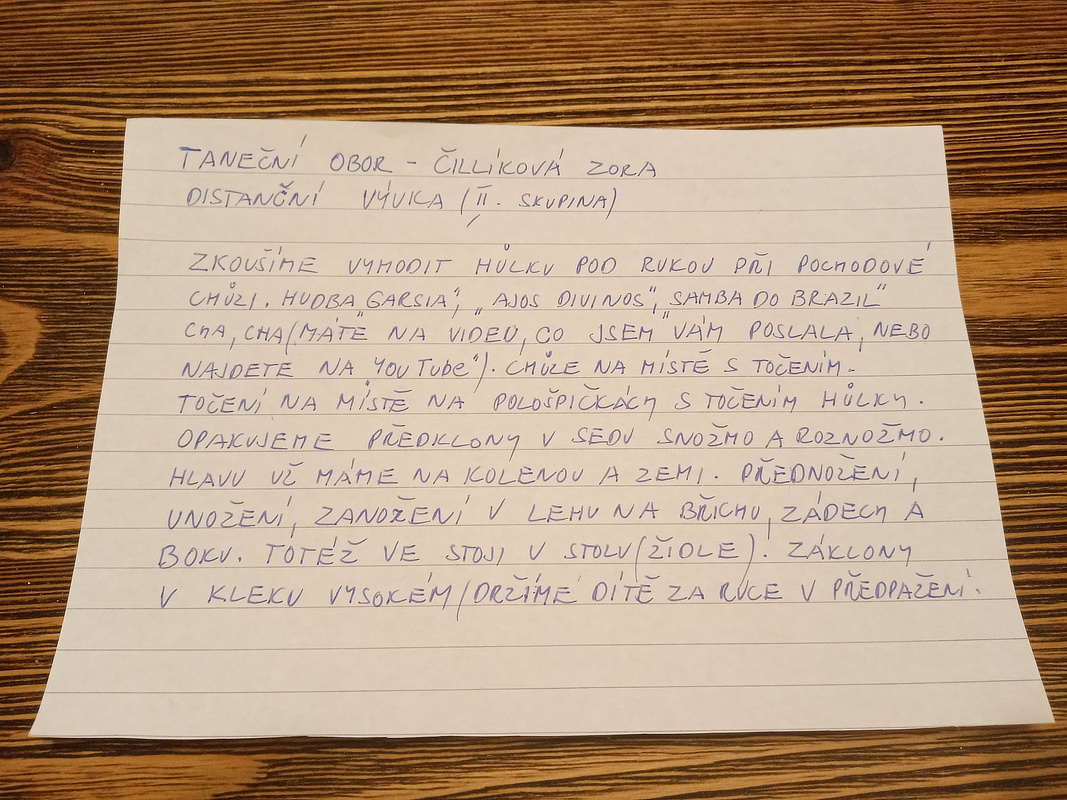 TANEČNÍ OBOR - ČILLÍKOVÁ ZORA
DISTANČNÍ VÝUKA (II. SKUPINA)
ZKOUŠÍME VYHODIT HŮLKU POD RUKOU PŘI POCHODOVÉ
CHŮZI. HUDBA GARSIA", „AJOS DIVINOS", „SAMBA DO BRAZIL"
CHA, CHA (MÁTE NA VIDEU, CO JSEM VÁM POSLALA, NEBO
NAJDETE NA YOU TUBE"). CHŮZE NA MÍSTĚ S TOČENÍM.
TOČENÍ NA MÍSTĚ NA POLOŠPIČKÁCH S TOČENÍM HŮLKY.
OPAKUJEME PŘEDKLONY V SEDU SNOŽMO A ROZNOŽMO.
HLAVU UŽ MÁME NA KOLENOU A ZEMI. PŘEDNOŽENÍ,
UNOŽENÍ, ZANOŽENÍ V LEHU NA BŘICHU, ZÁDECH A
BOKU. TOTÉŽ VE STOJI V STOLU (ŽIDLE). ZÁKLONY
V KLEKU VYSOKÉM (DRŽÍME DÍTĚ ZA RUCE V PŘEDPAŽENÍ.